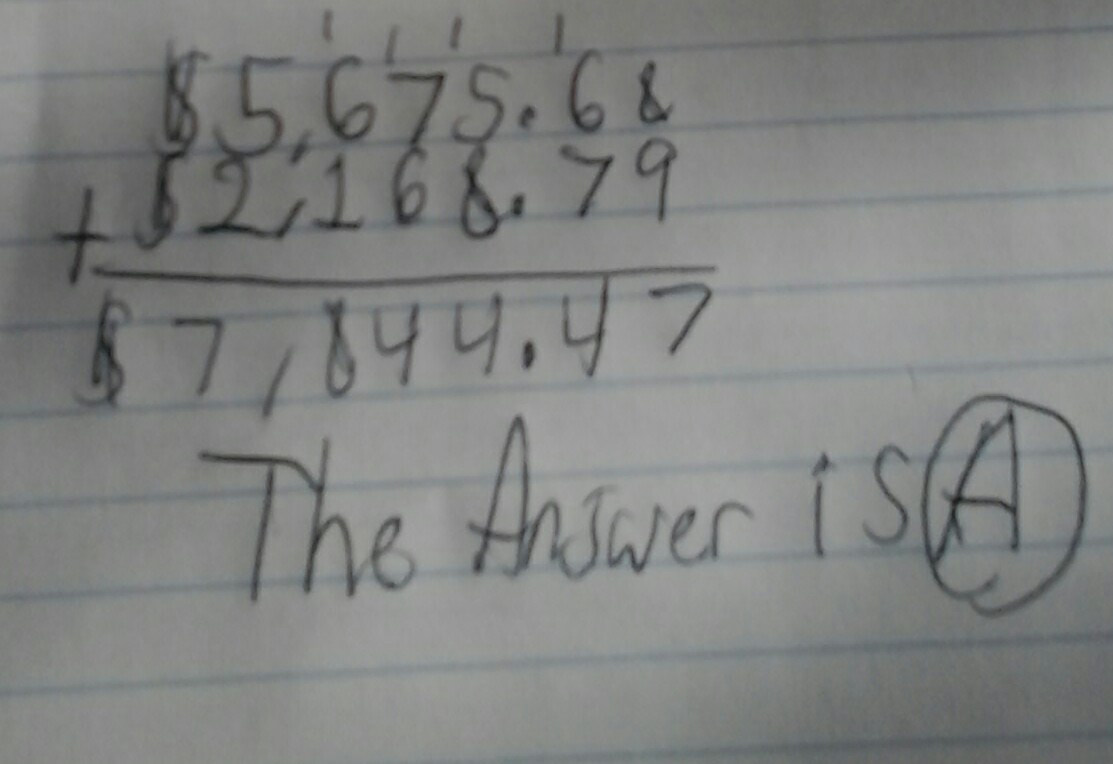 1 1 1 1
$5,675.68
+ $2,168.79
$7,844.47
The Answer is A